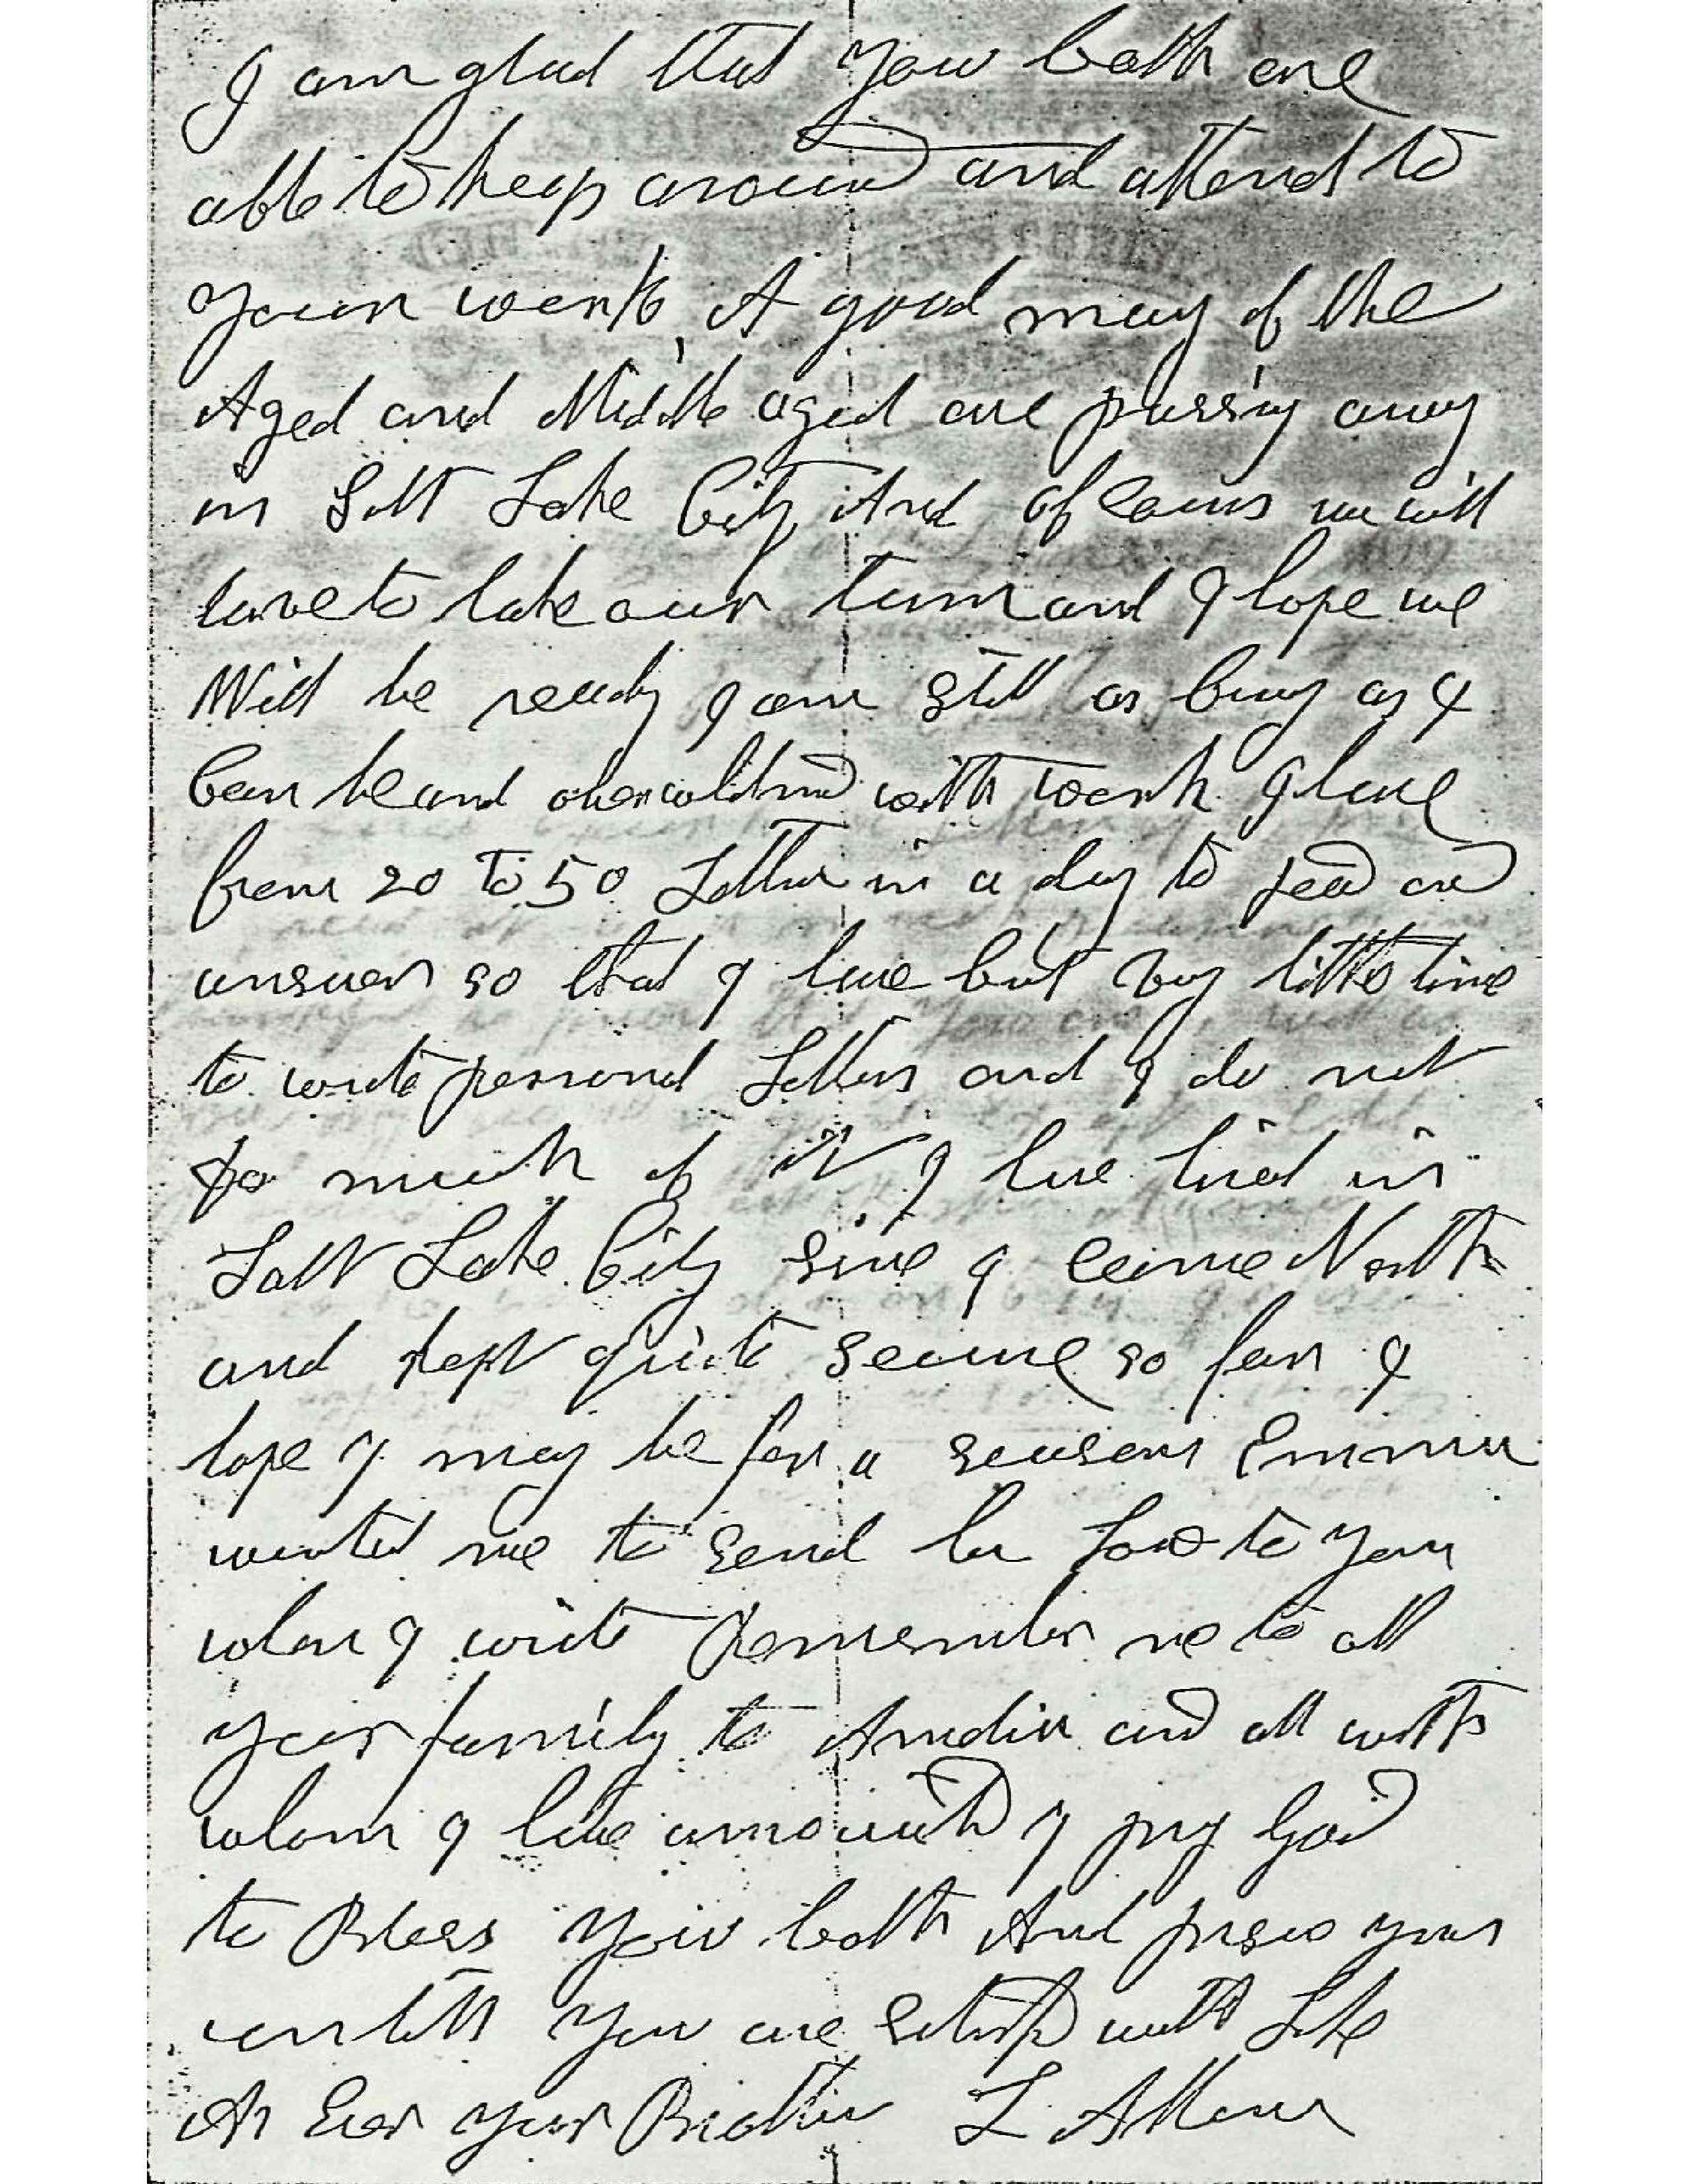 I am glad that you both are
able to keep around and attend to
your work, A good many of the
Aged and Middle aged are passing away
in Salt Lake City And of cours we will
have to take our turn and I hope we
Will be ready I am still as busy as I
Can be and overwelmd with work I have
from 20 to 50 Letters in a day to read and
answer so that I have but vry little time
to write personal Letters and I do not
do much of it I have lived in
Salt Lake City since I came North
and kept quite secure so far I
hope I may be for a season Emma
wanted me to send her Love to you
when I write Remember me to all
your family to and all with
whom I like I pray God
to Bless you both And your
untill you are satisfid with Life
As Ever your Brother L Allen